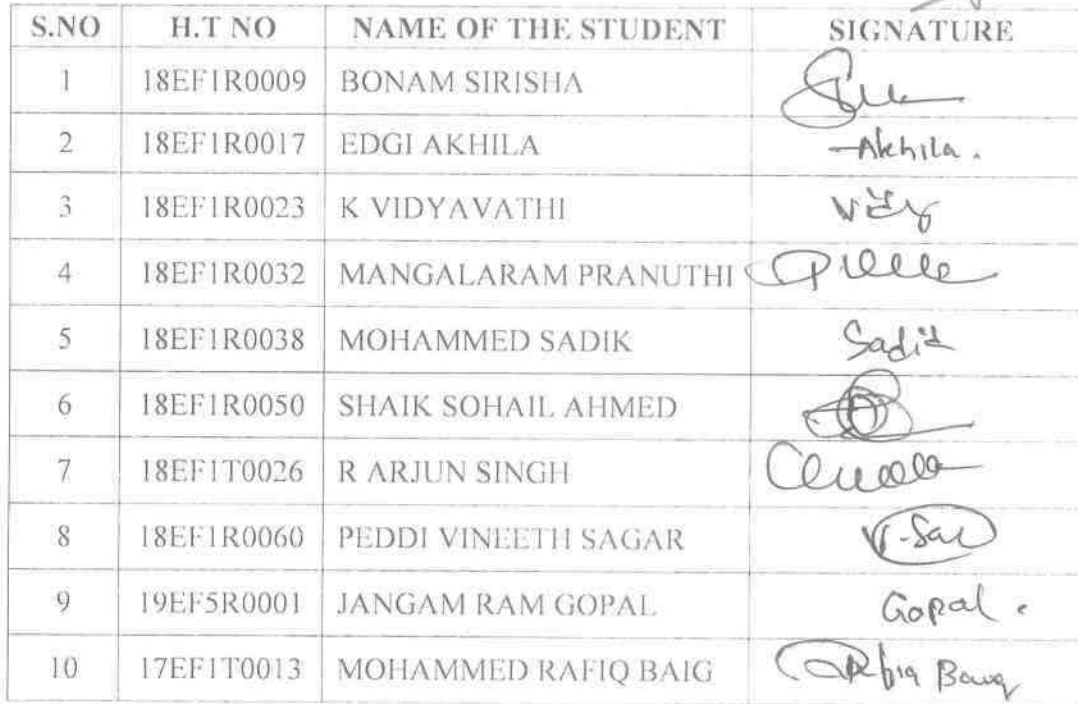 S.NO H.T NO NAME OF THE STUDENT SIGNATURE
1 18EF1R0009 BONAM SIRISHA
2 18EF1R0017 EDGI AKHILA Akhila.
3 18EF1R0023 K VIDYAVATHI
4 18EF1R0032 MANGALARAM PRANUTHI
5 18EF1R0038 MOHAMMED SADIK Sadik
6 18EF1R0050 SHAIK SOHAIL AHMED
7 18EF1T0026 R ARJUN SINGH
8 18EF1R0060 PEDDI VINEETH SAGAR
9 19EF5R0001 JANGAM RAM GOPAL Gopal.
10 17EF1T0013 MOHAMMED RAFIQ BAIG